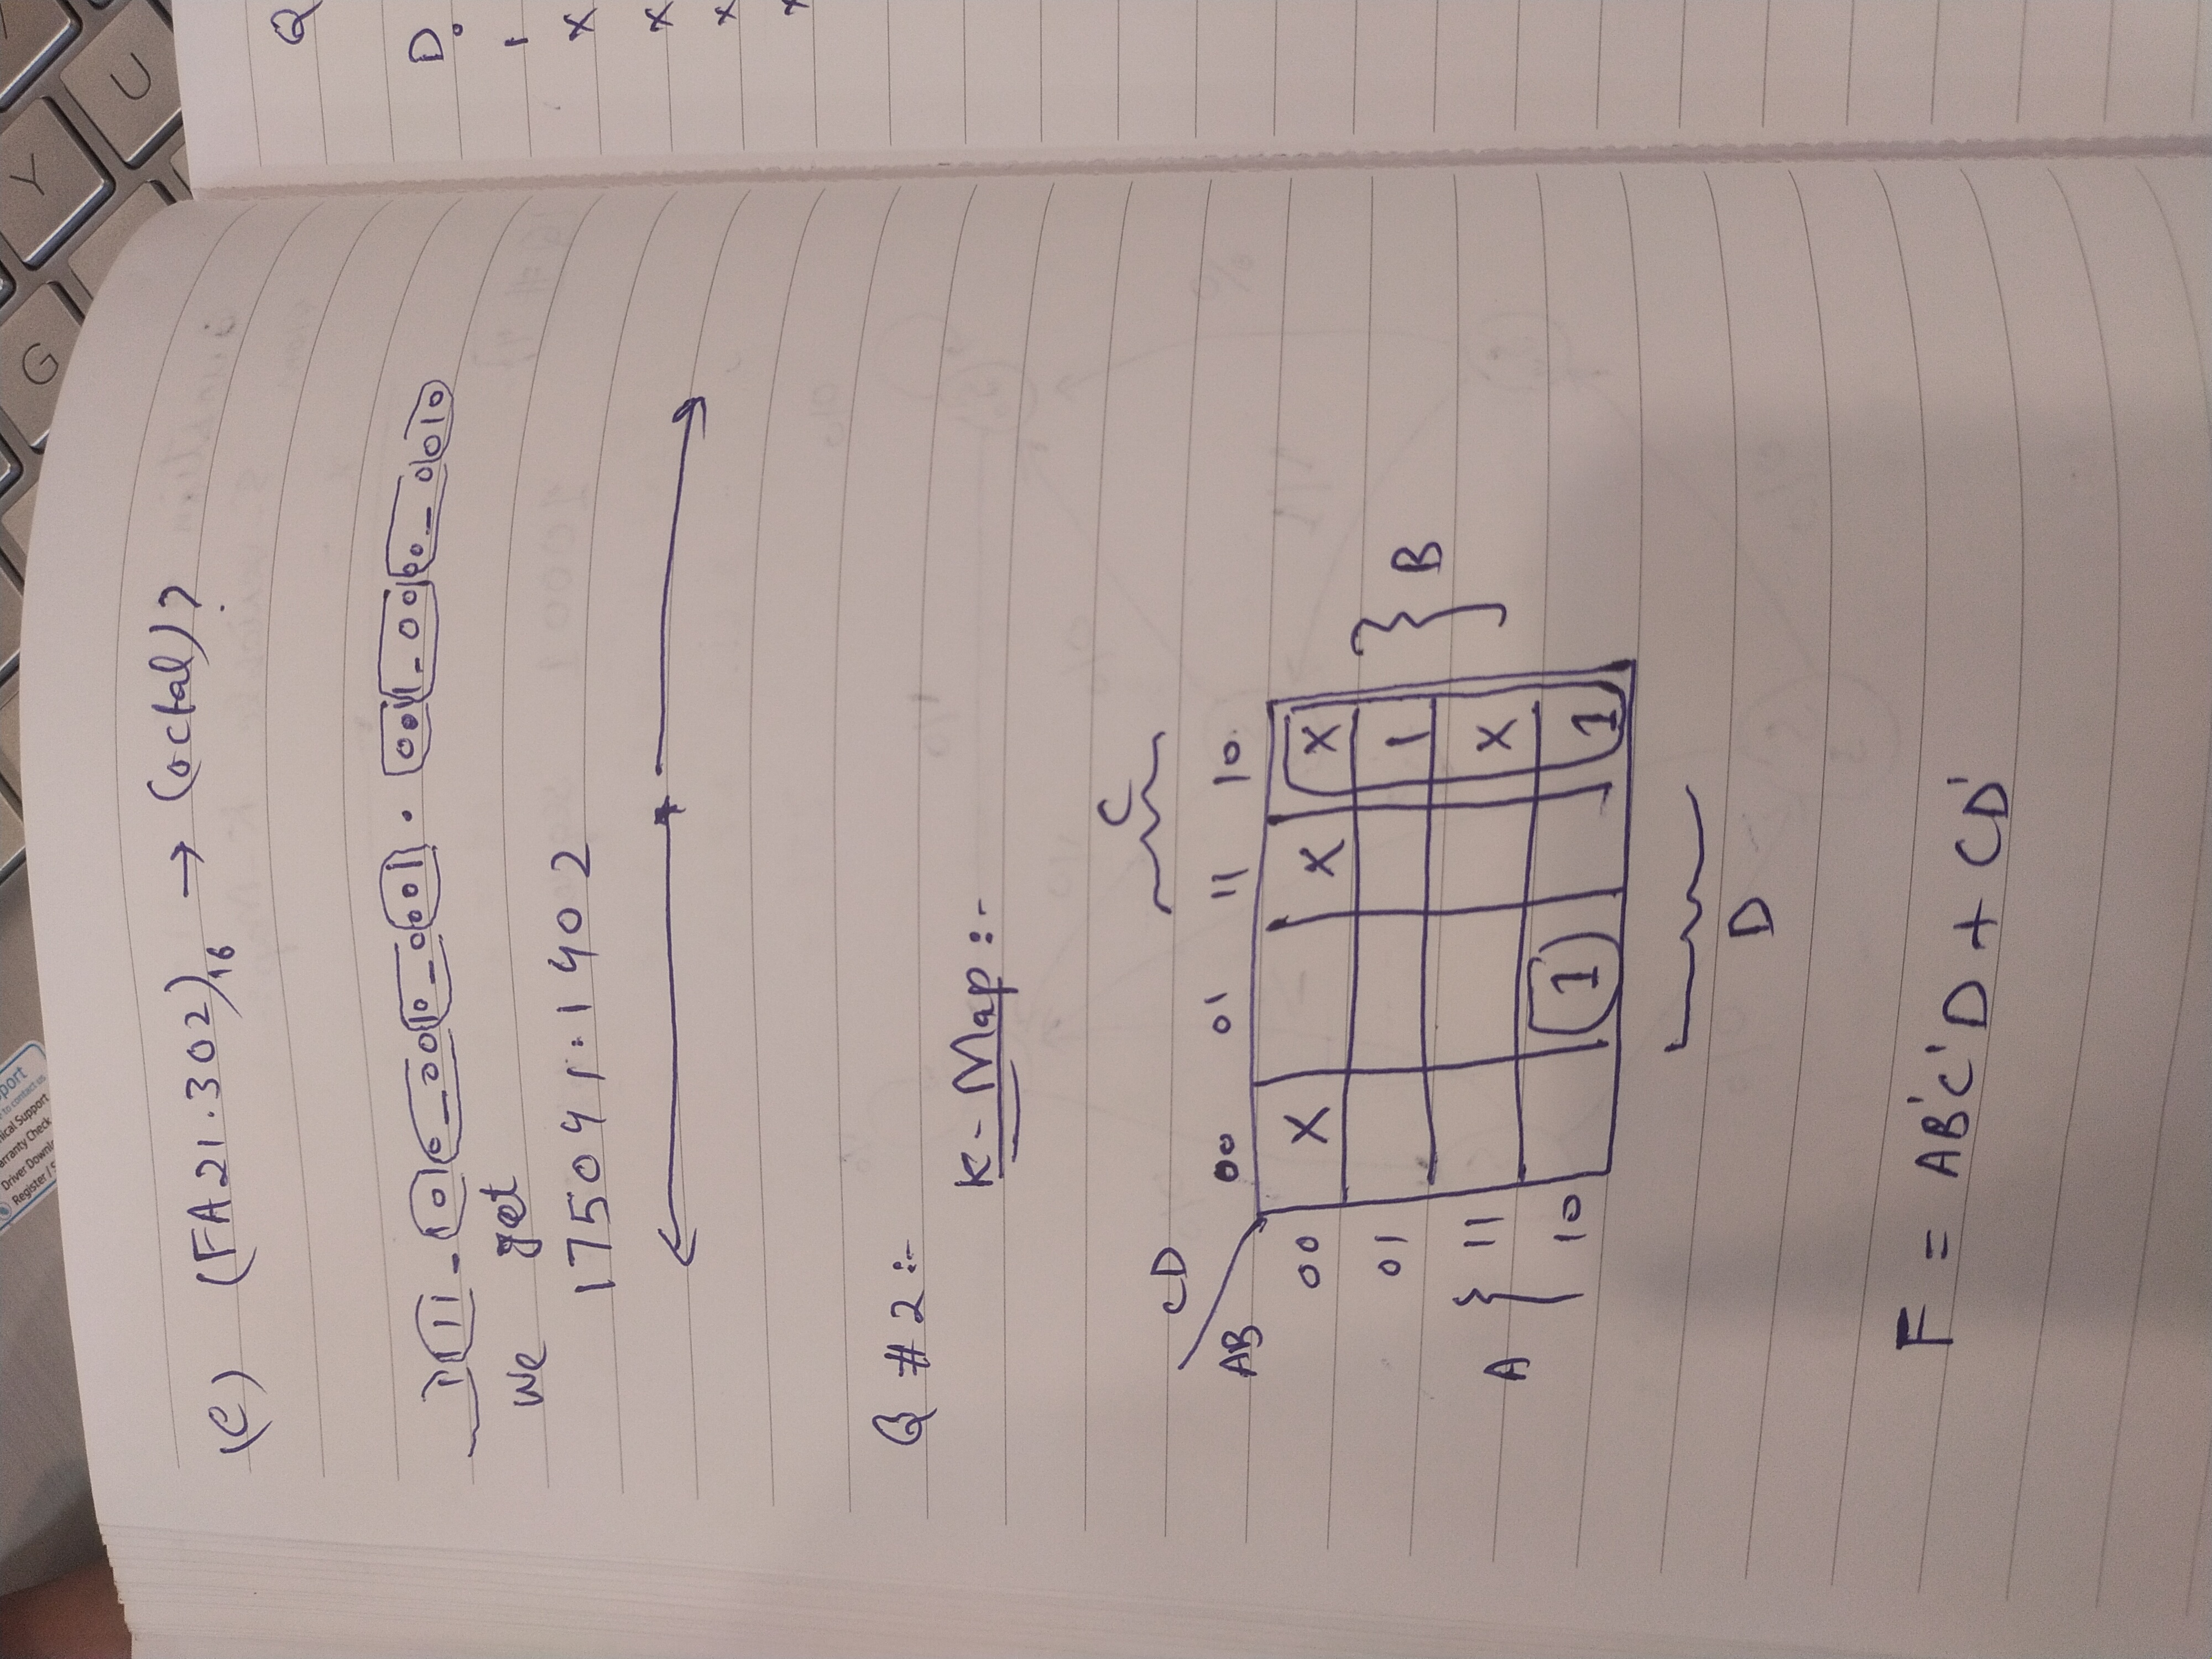 port
to contact us
ical Support
arranty Check
Driver Downl
Register / S
G
Y
U
(C) (FA21.302)16 → (octal)?
1111_1010_0010_0001 . 0011_0000_0010
we get
175041.1402
Q #2 :-
K-Map :-
C
CD
AB
00 01 11 10
00 X X X
01 1
B
11 X
A
10 1 1
D
F = AB'C'D + CD'
Q
D
0
1
X
X
X
X